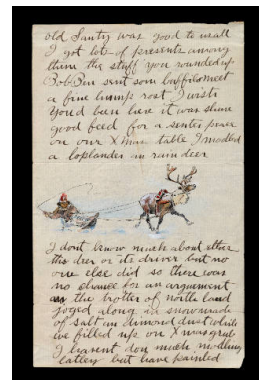 old Santy was good to us all
I got lots of presents among
them the stuff you rounded up
Bob Ben sent som buffilo meet
a fine hump rost I wish
You'd ben here it was shure
good feed for a senter peace
on our Xmas table I modled
a loplander in rain deer
I dont know much about ether
the deer or its driver but no
one else did so there was
no chance for an arguement
as the trotter of north land
joged along in snow made
of salt an dimond dust while
we filled up on Xmas grub
I havent don much modling
lattery but have painted